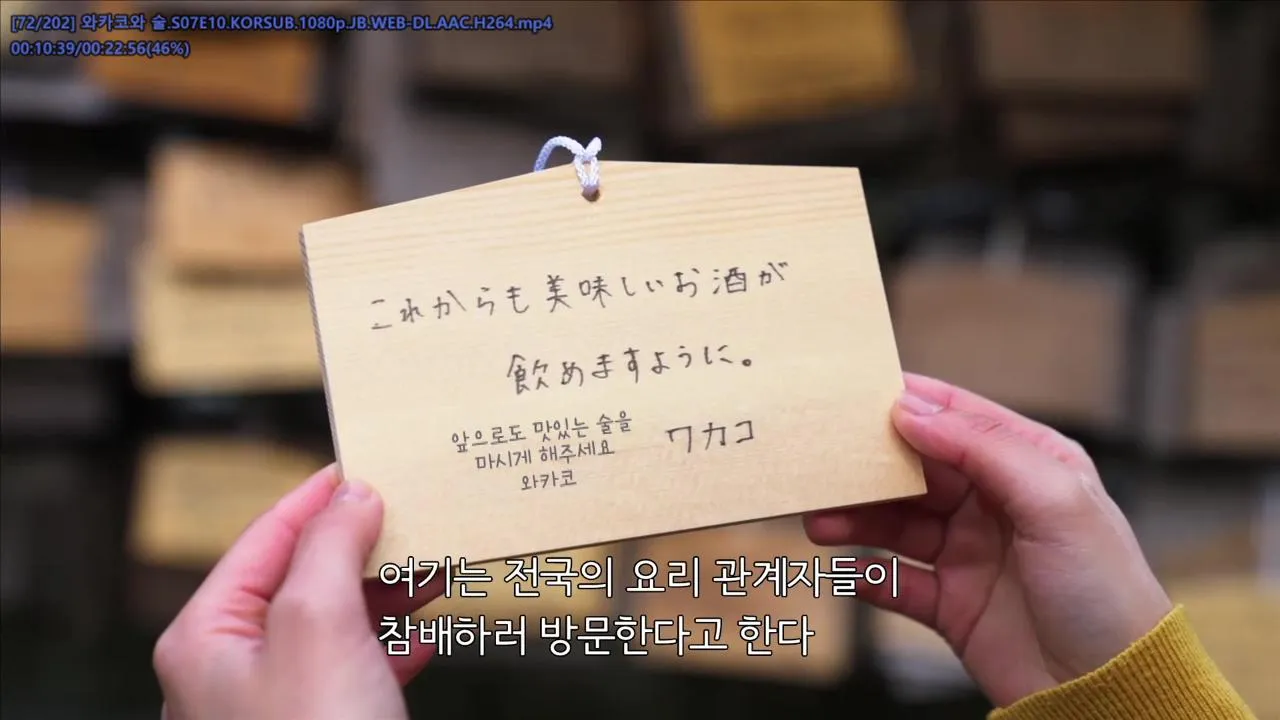 [72/202] 와카코와 술.S07E10.KORSUB.1080p.JB.WEB-DL.AAC.H264.mp4
00:10:39/00:22:56(46%)
これからも美味しいお酒が
飲めますように。
ワカコ
앞으로도 맛있는 술을
마시게 해주세요
와카코
여기는 전국의 요리 관계자들이
참배하러 방문한다고 한다